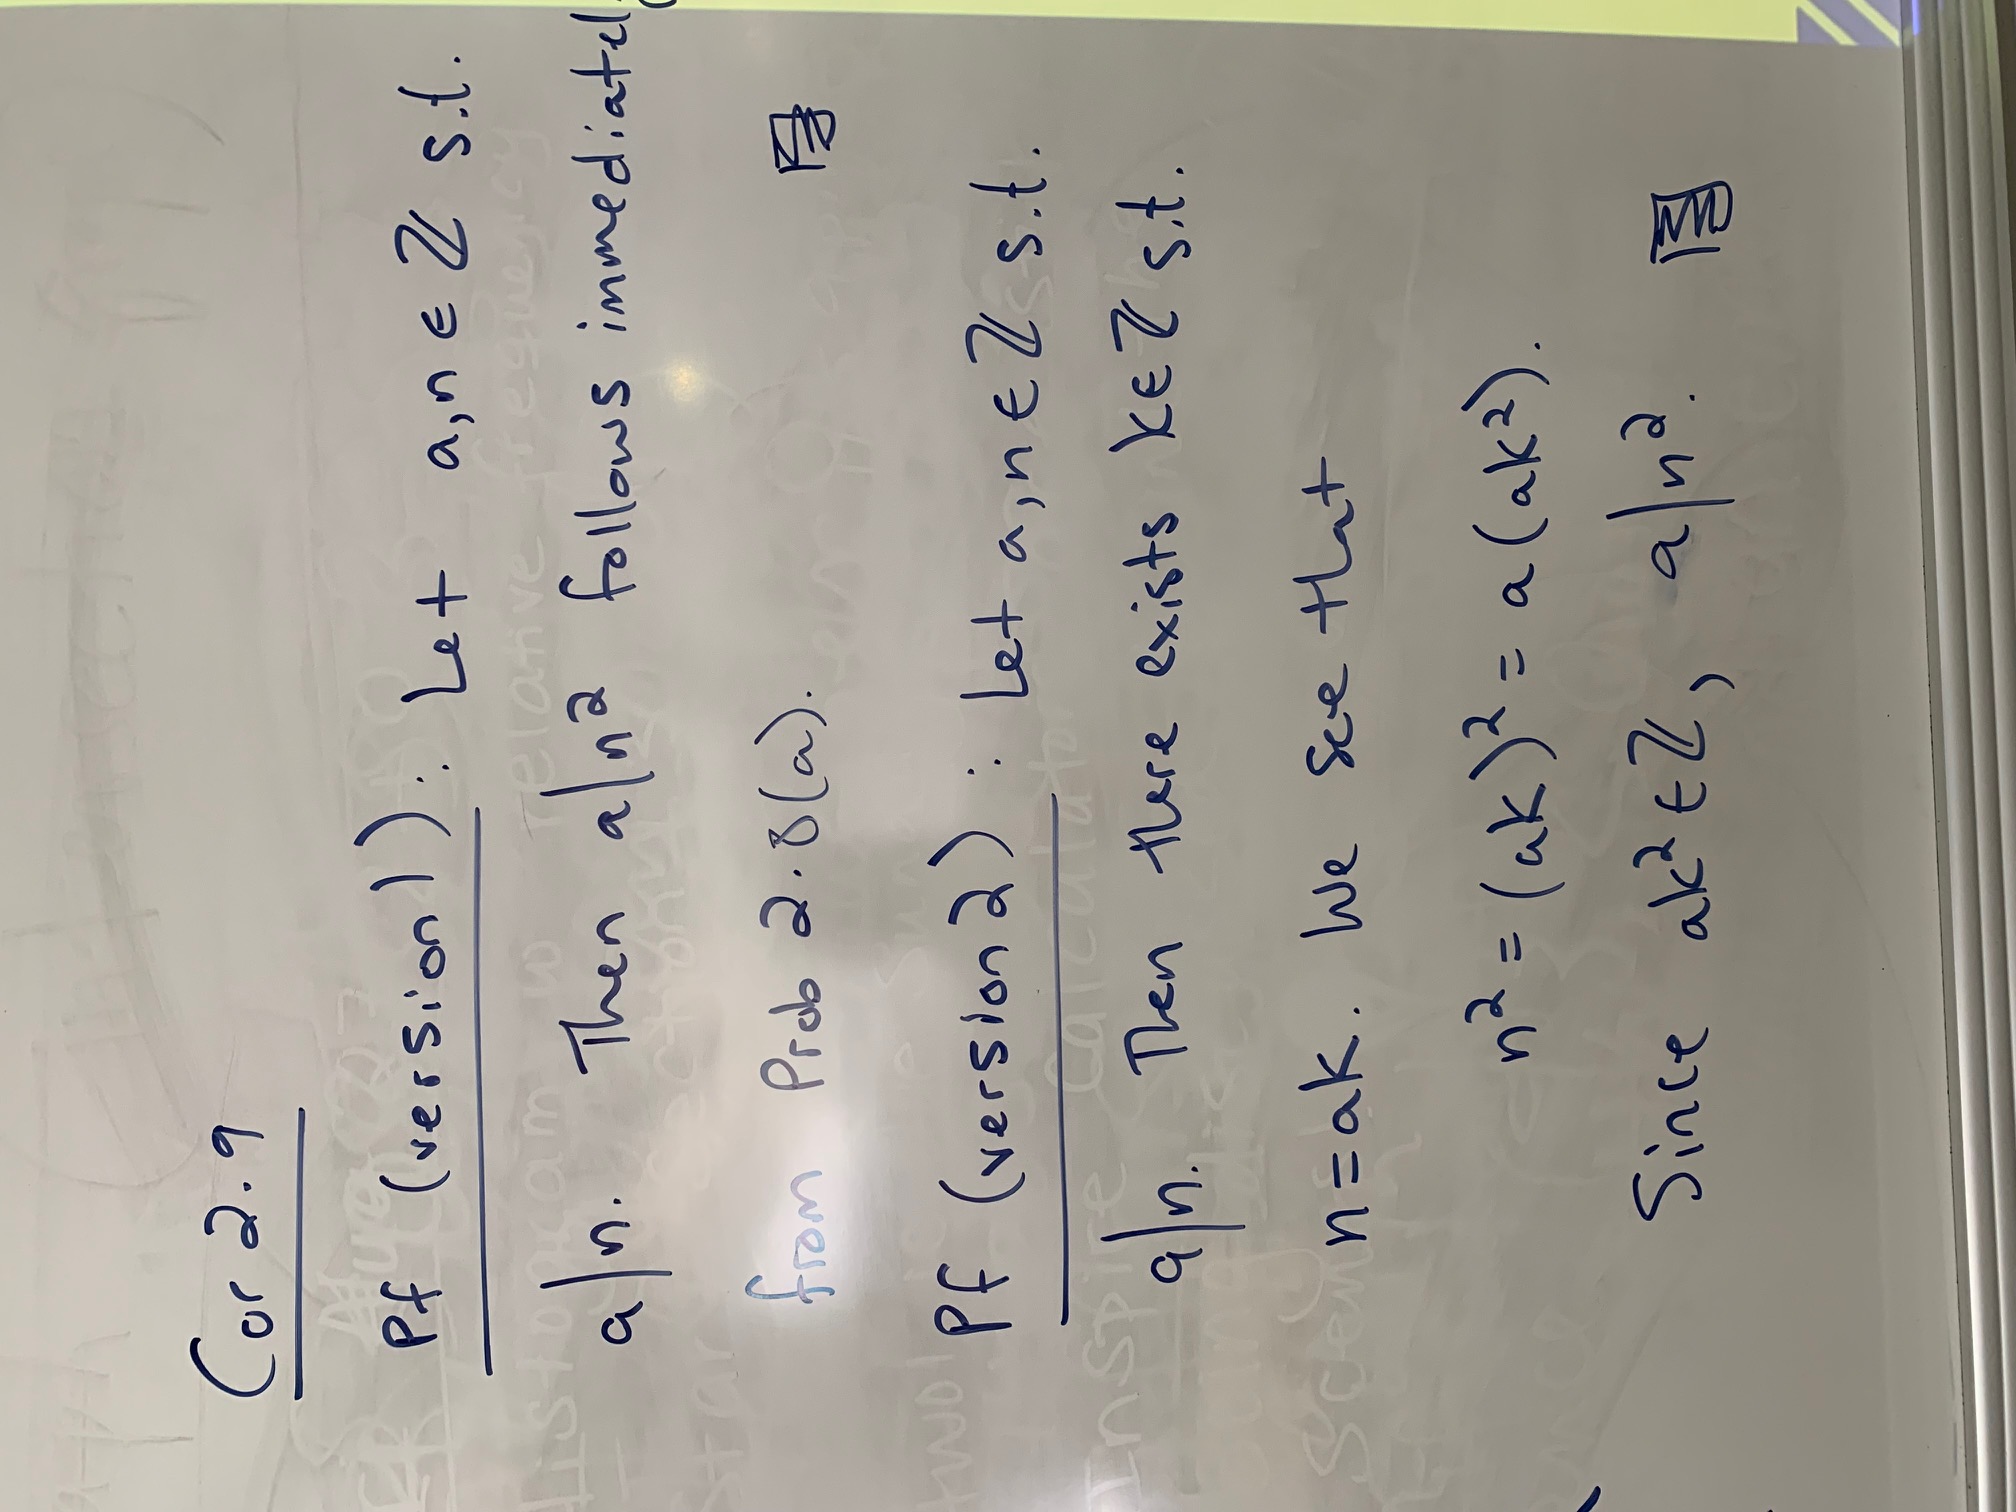 Cor 2.9
Pf (version 1): Let a,n ∈ ℤ s.t.
a|n. Then a|n² follows immediatel
from Prob 2.8(a).
Pf (version 2): Let a,n ∈ ℤ s.t.
a|n. Then there exists k∈ℤ s.t.
n=ak. We see that
n² = (ak)² = a(ak²).
Since ak² ∈ ℤ, a|n².